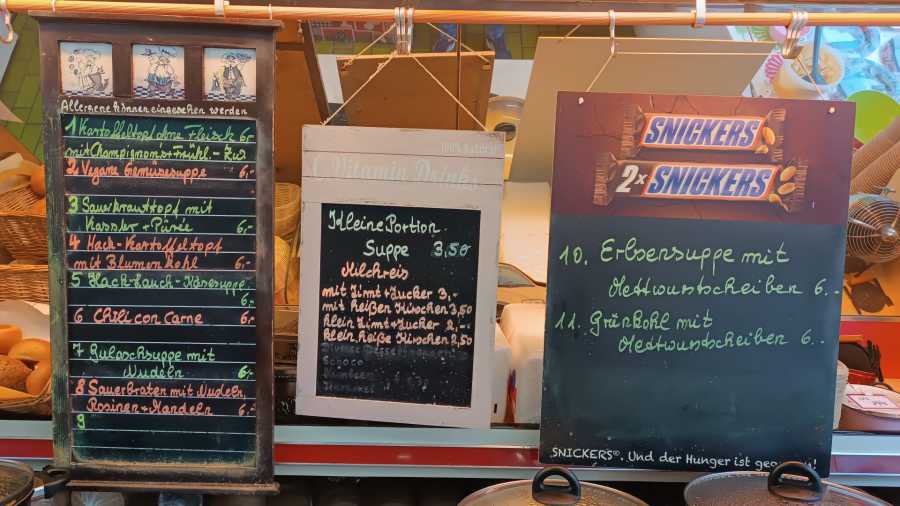 Allergene können eingesehen werden
1 Kartoffeltopf ohne Fleisch 6,-
mit Champignons + Frühl. - Zw.
2 Vegane Gemüsesuppe 6,-
3 Sauerkrauttopf mit
Kassler + Püree 6,-
4 Hack-Kartoffeltopf
mit Blumenkohl 6,-
5 Hack-Lauch-Käsesuppe
6,-
6 Chili con Carne 6,-
7 Gulaschsuppe mit
Nudeln 6,-
8 Sauerbraten mit Nudeln,
Rosinen + Mandeln 6,-
9
100%
Vitamin Drinks
Kleine Portion
Suppe 3,50
Milchreis
mit Zimt + Zucker 3,-
mit heißen Kirschen 3,50
klein Zimt + Zucker 2,-
klein heiße Kirschen 2,50
SNICKERS
2x SNICKERS
10. Erbsensuppe mit
Mettwurstscheiben 6.-
11. Grünkohl mit
Mettwurstscheiben 6.-
SNICKERS®. Und der Hunger ist